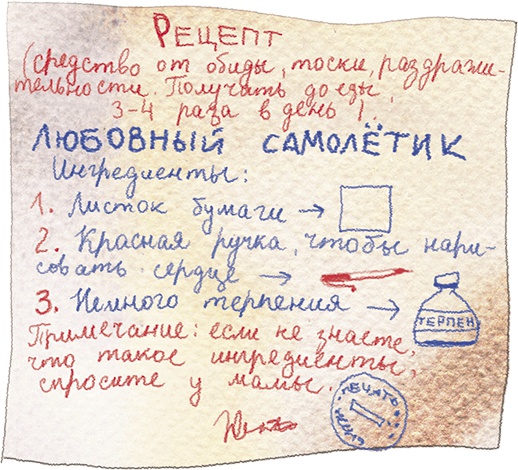 Рецепт
(средство от обиды, тоски, раздражи-
тельности. Получать до еды
3-4 раза в день!..
ЛЮБОВНЫЙ САМОЛЁТИК
Ингредиенты:
1. Листок бумаги →
2. Красная ручка, чтобы нари-
совать сердце →
3. Немного терпения →
ТЕРПЕН
Примечание: если не знаете,
что такое ингредиенты,
спросите у мамы.
ПЕЧАТЬ